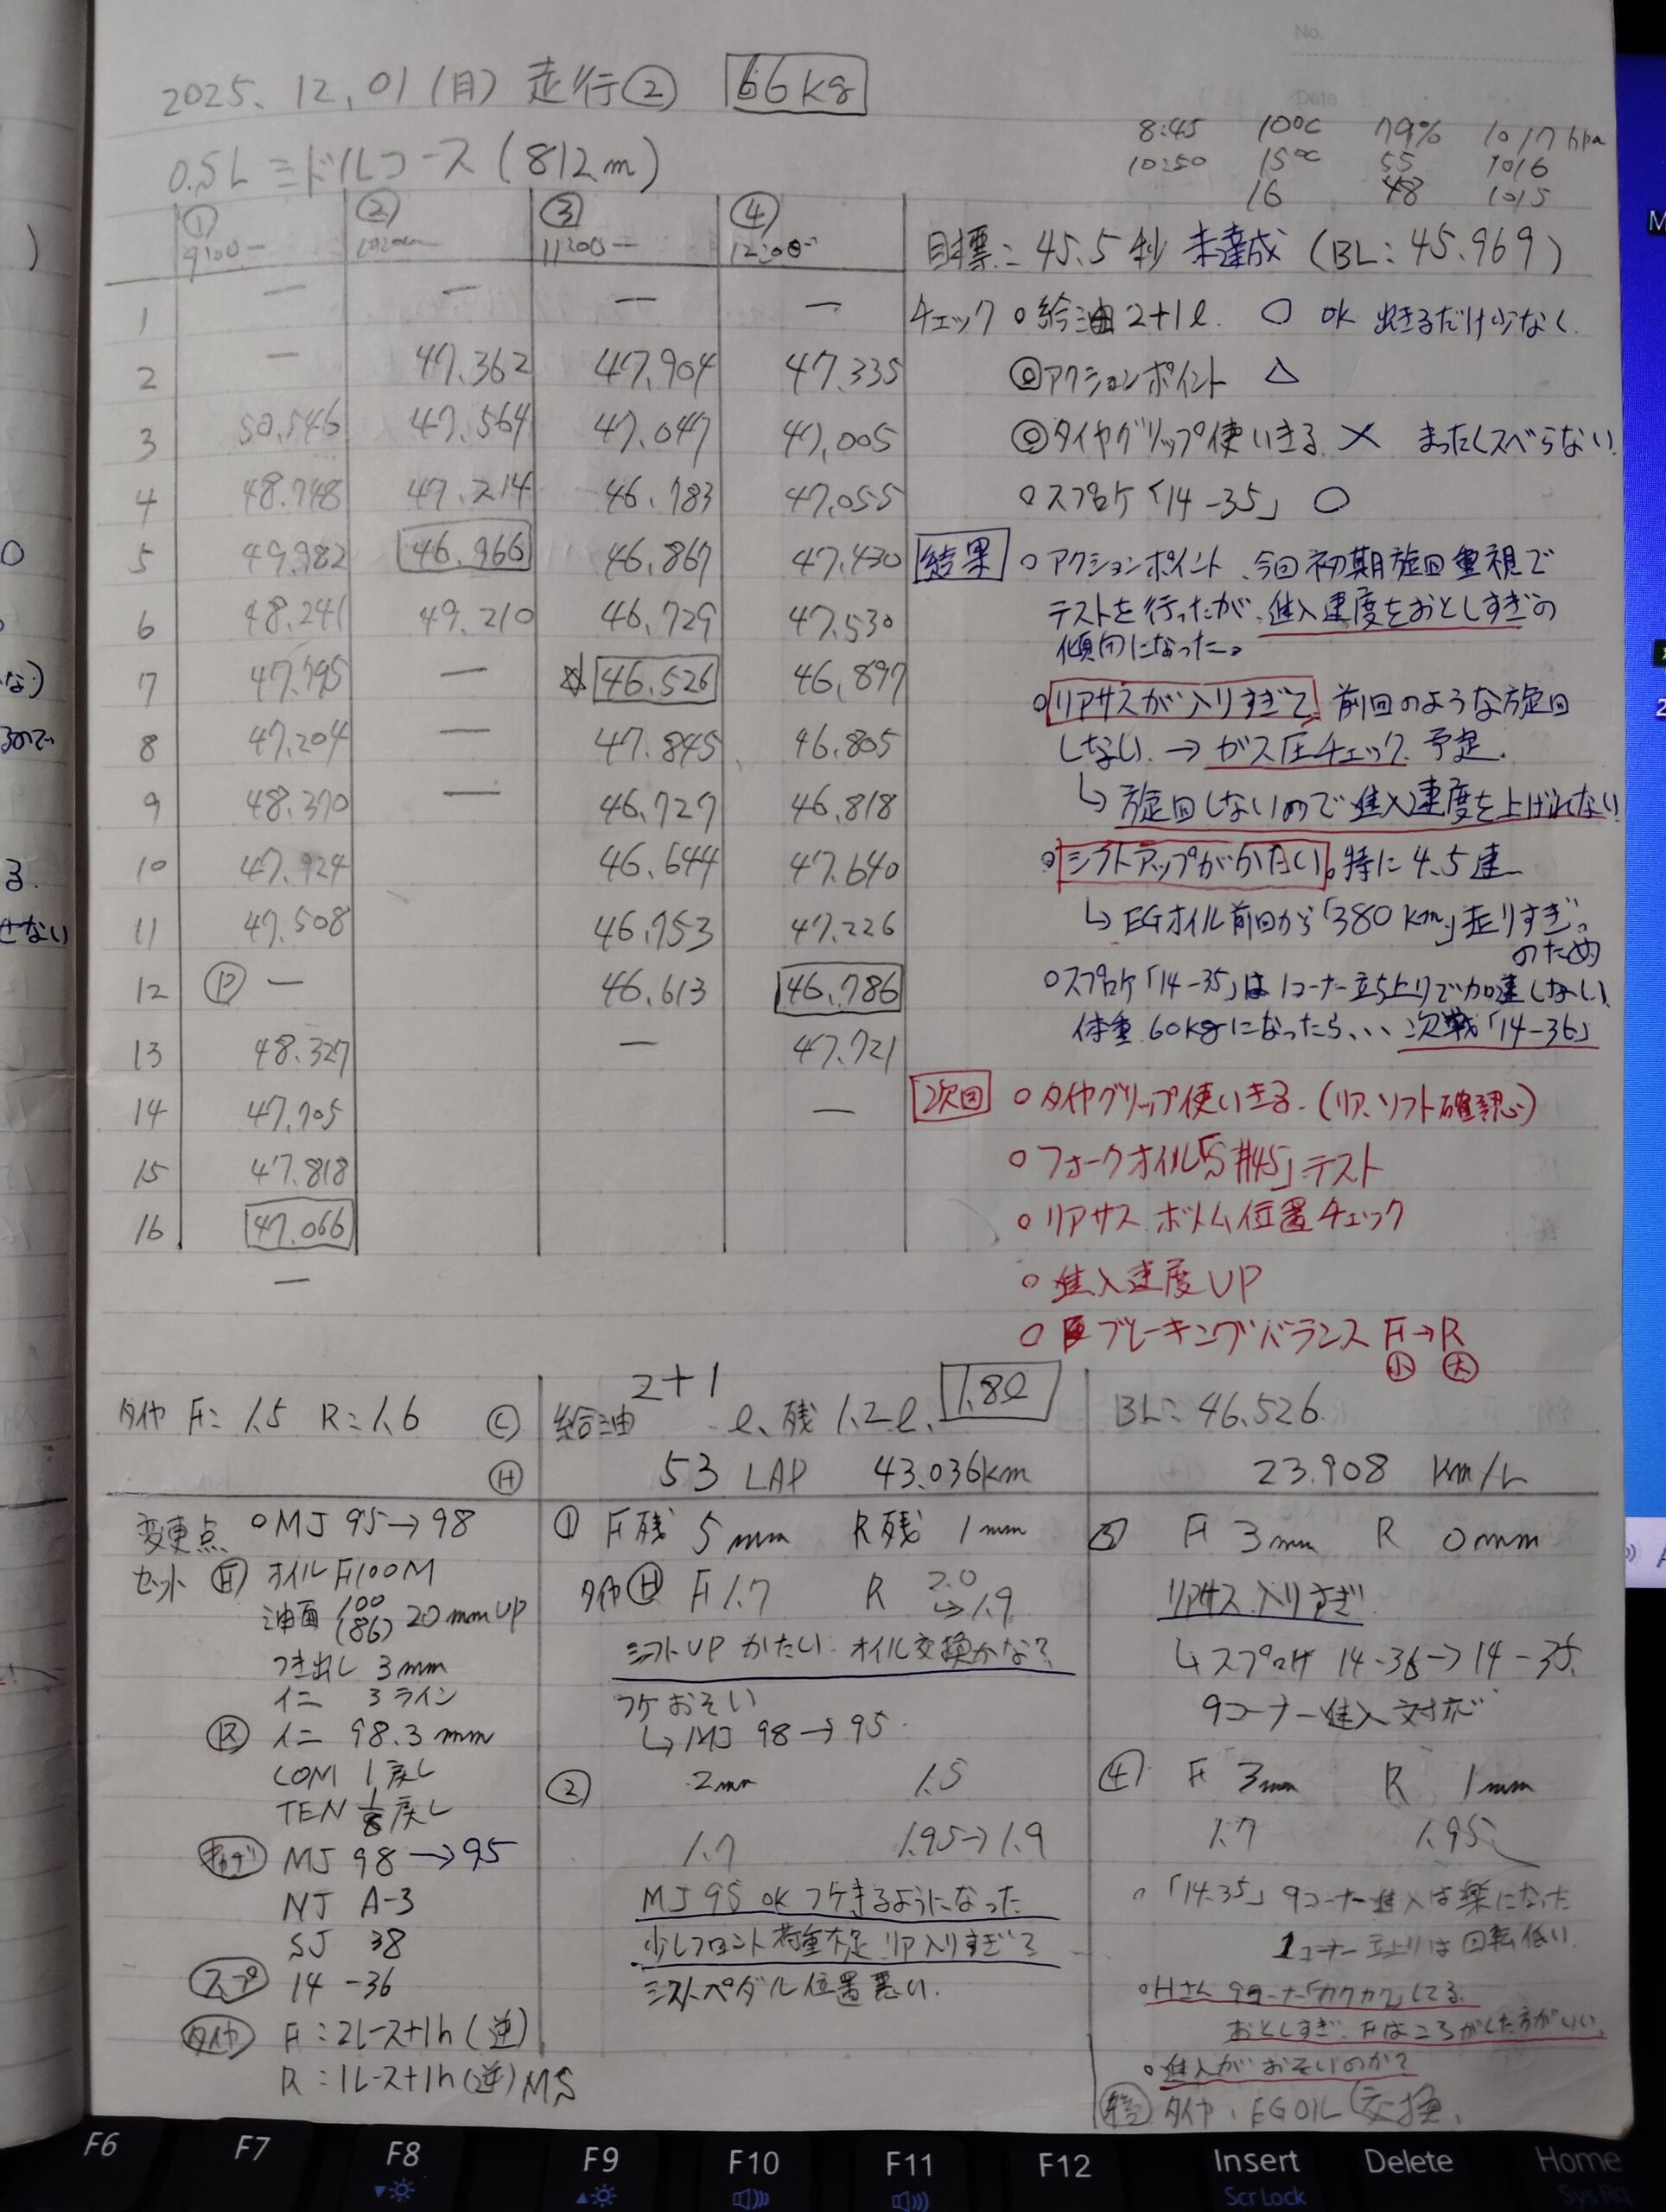 No.
Date
2025. 12. 01 (月) 走行② 66kg
8:45 10℃ 79% 1017 hpa
10:50 15℃ 55 1016
16 48 1015
0.5L ミドルコース (812m)
① ② ③ ④
目標: 45.5秒 未達成 (BL: 45.969)
1 — — — —
2 — 47.362 47.904 47.335
3 50.546 47.564 47.047 47.005
4 48.748 47.214 46.783 47.055
5 49.982 46.966 46.867 47.430
6 48.241 49.210 46.729 47.530
7 47.795 — ☆ 46.526 46.897
8 47.204 — 47.845 46.805
9 48.370 — 46.727 46.818
10 47.924 46.644 47.640
11 47.508 46.753 47.226
12 Ⓟ — 46.613 46.786
13 48.327 — 47.721
14 47.705 —
15 47.818
16 47.066
—
チェック ○給油 2+1ℓ. ○ OK 出きるだけ少なく.
◎アクションポイント △
◎タイヤグリップ使いきる. × まったくスベらない.
○スプロケ「14-35」 ○
結果 ○アクションポイント、今回初期旋回重視で
テストを行ったが、進入速度をおとしすぎの
傾向になった。
○リアサスが入りすぎて 前回のような旋回
しない. → ガス圧チェック 予定.
↳ 旋回しないので進入速度を上げれない
○シフトアップがかたい。特に4.5速
↳ EGオイル前回から「380km」走りすぎ。
のため
○スプロケ「14-35」は1コーナー立ち上りで加速しない.
体重 60kgになったら、、、次戦「14-36」
次回 ○タイヤグリップ使いきる. (リア、ソフト確認)
○フォークオイル「S #45」テスト
○リアサス ボトム位置チェック
○進入速度UP
○ブレーキングバランス F→R
小 大
タイヤ F: 1.5 R: 1.6 Ⓒ
Ⓗ
2+1
給油 ℓ、残 1.2ℓ、 1.8ℓ
53 LAP 43.036km
BL: 46.526
23.908 km/L
変更点 ○MJ 95→98
セット Ⓕ オイル F100M
油面 100 (86) 20mm UP
つき出し 3mm
イニ 3ライン
Ⓡ イニ 98.3mm
COM 1戻し
TEN 1/8戻し
キャブ MJ 98→95
NJ A-3
SJ 38
スプ 14-36
タイヤ F:2レース+1h (逆)
R:1レース+1h(逆) MS
① F残 5mm R残 1mm
タイヤ Ⓗ F 1.7 R 2.0→1.9
シフトUP かたい. オイル交換かな?
フケおそい
↳MJ 98→95.
② 2mm 1.5
1.7 1.95→1.9
MJ 95 OK フケきるようになった
少しフロント荷重不足 リア入りすぎ?
シフトペダル位置悪い.
③ F 3mm R 0mm
リアサス入りすぎ
↳スプロケ 14-36→14-35.
9コーナー進入対応
④ F 3mm R 1mm
1.7 1.95
○「14-35」9コーナー進入は楽になった
1コーナー立上りは回転低い.
○Hさん 9コーナー「カクカク」してる.
おとしすぎ. Fはころがした方がいい.
○進入がおそいのか?
タイヤ、EG OIL 交換.
F6
F7
F8
F9
F10
F11
F12
Insert
Scr Lock
Delete
Home